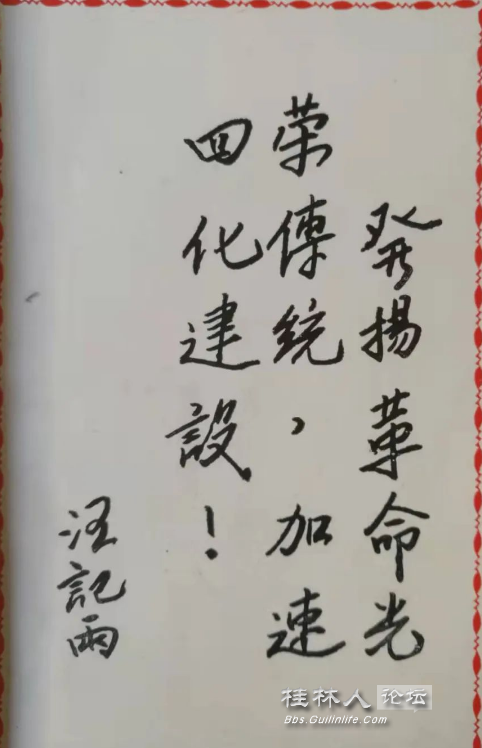 發揚革命光
荣傳統，加速
四化建設！
汪記雨
桂林人论坛
Bbs.Guilinlife.Com